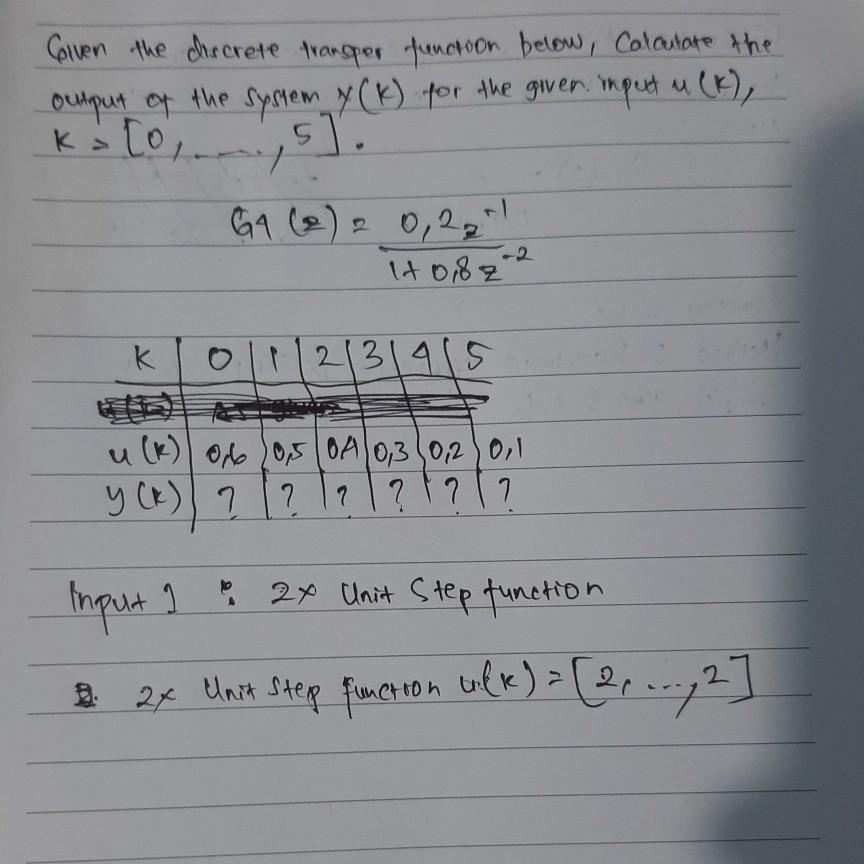 Given the discrete transfer function below, Calculate the
output of the system y(k) for the given input u(k),
k = [0, ....., 5].
G1(z) = 0,2z^-1 / 1 + 0,8z^-2
k | 0 | 1 | 2 | 3 | 4 | 5
u(k) | 0,6 | 0,5 | 0,4 | 0,3 | 0,2 | 0,1
y(k) | ? | ? | ? | ? | ? | ?
Input 1 : 2x Unit Step function
2x Unit Step function u(k) = [2, ..., 2]